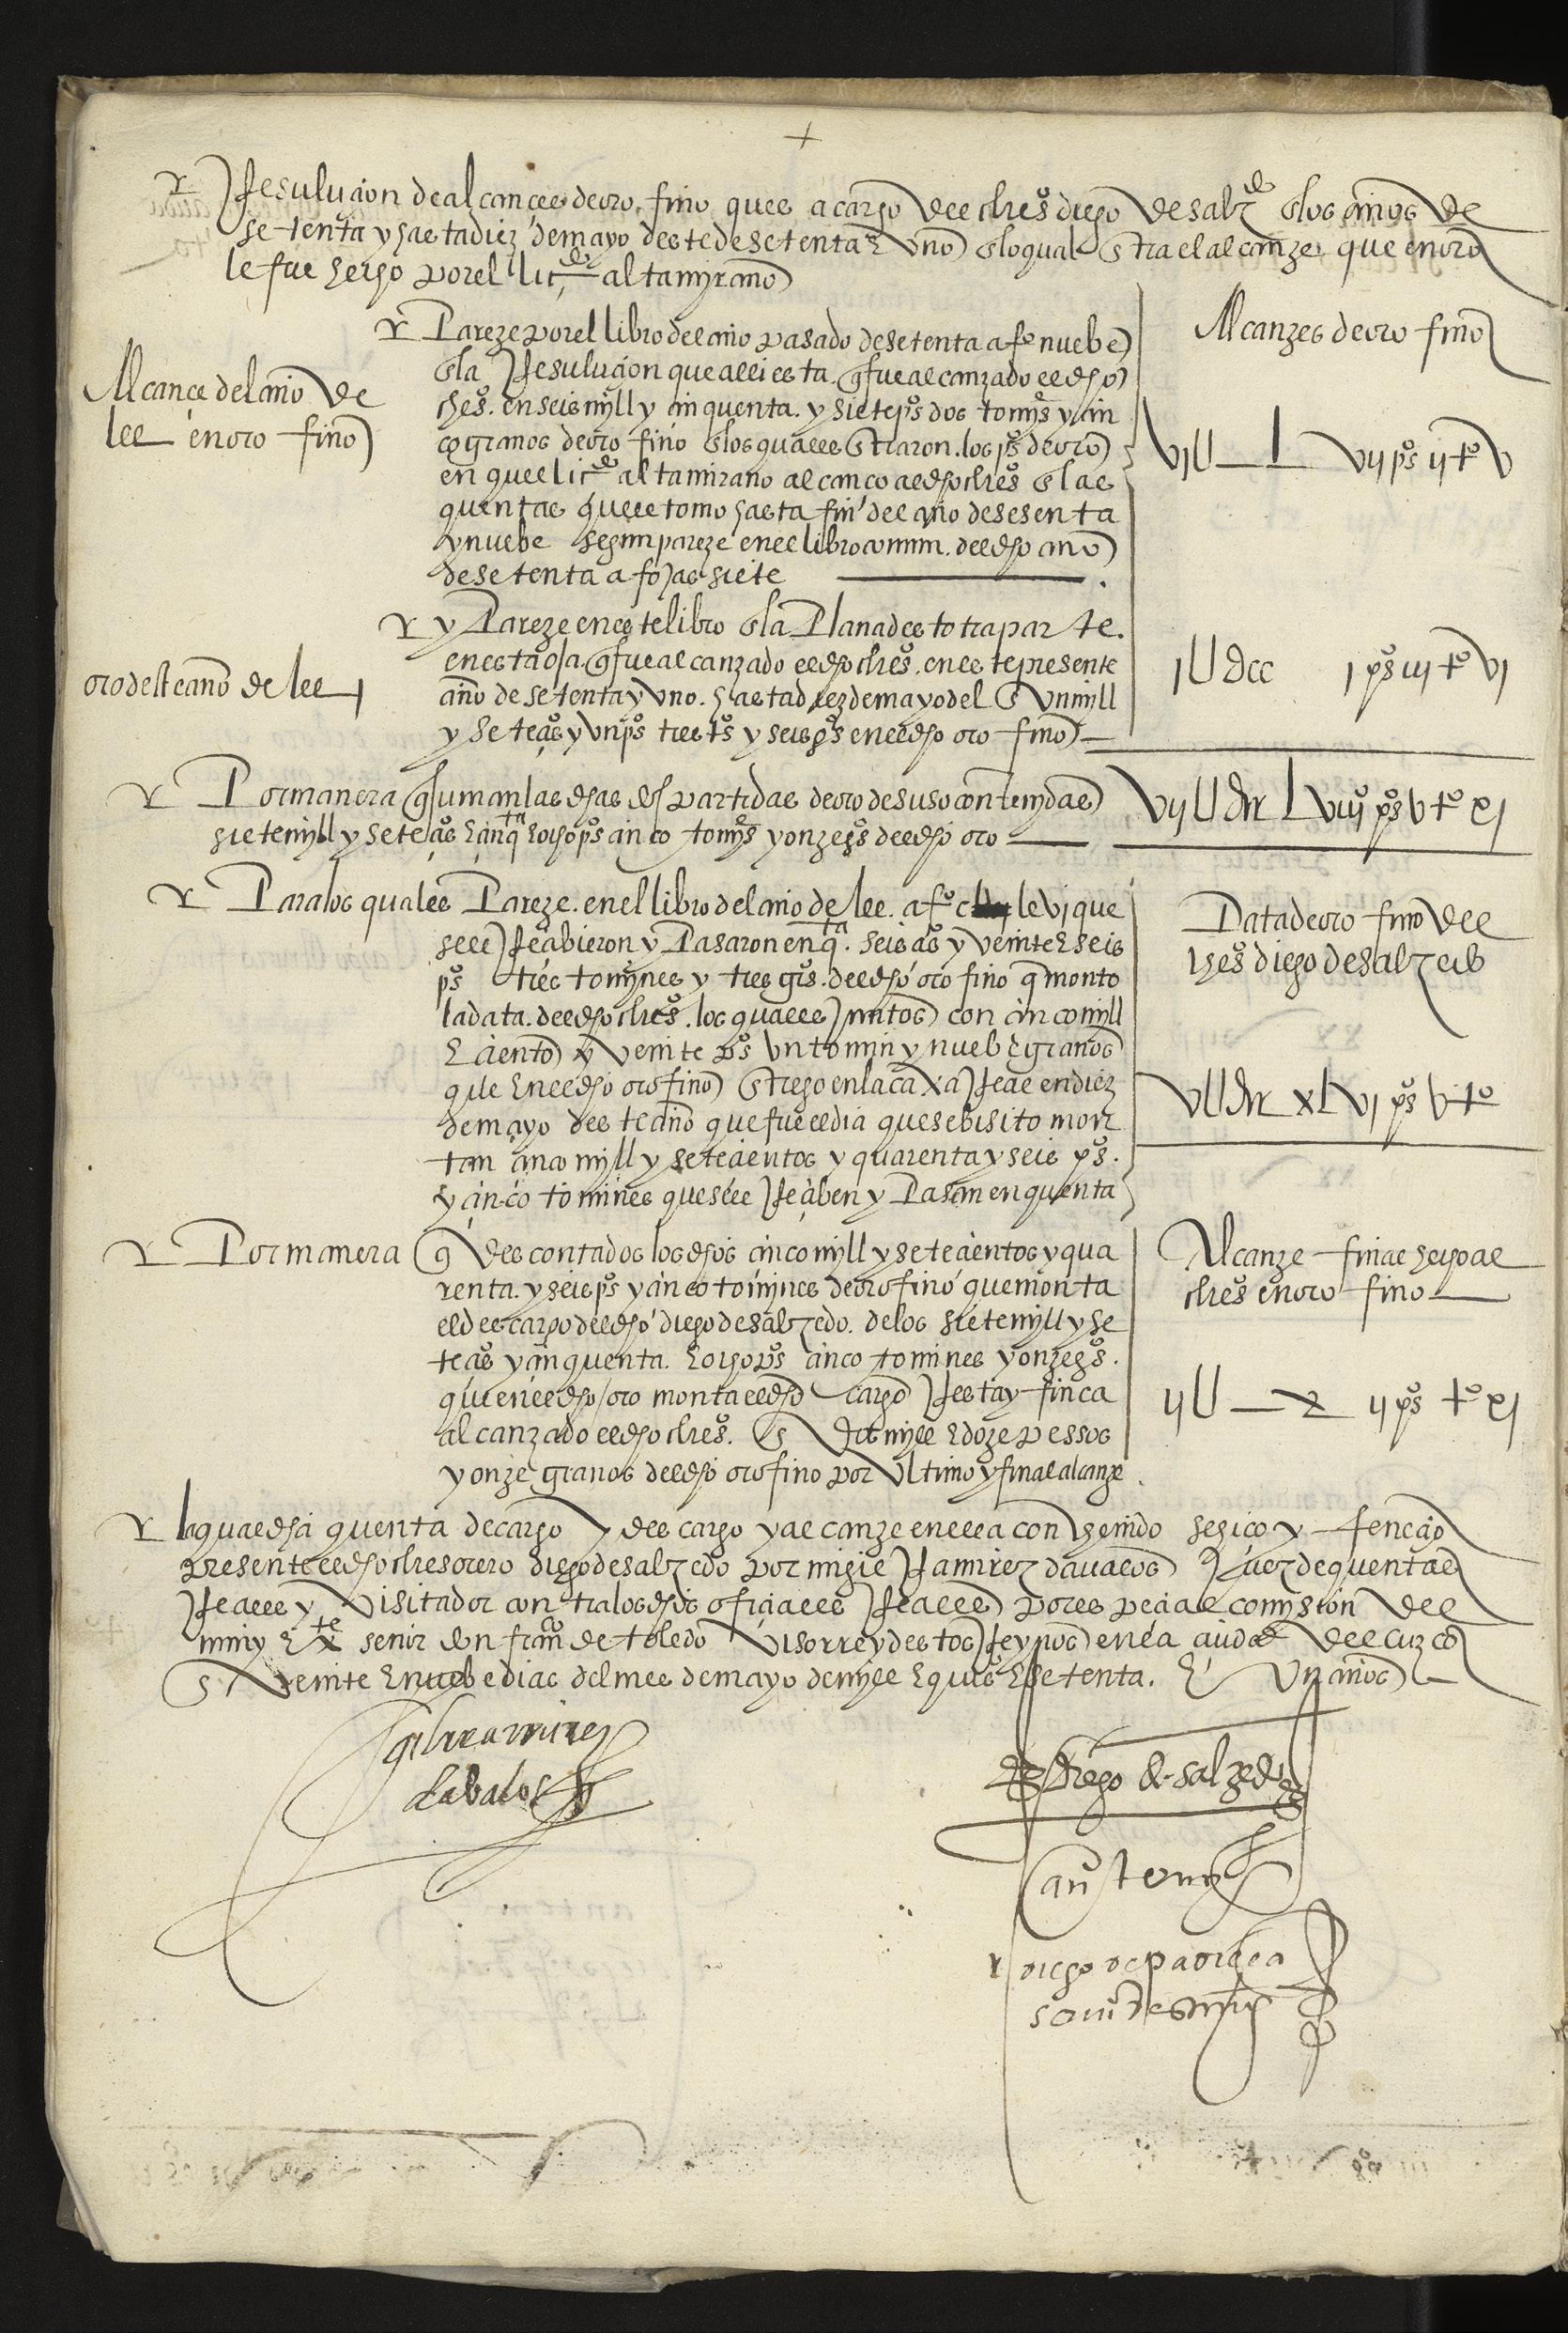 +
Resuluçion de alcançes de oro fino que es a cargo del thesº diego de salzdo en los años de
setenta y hasta diez de mayo deste de setenta E uno en lo qual entra el alcanze que en oro
le fue hecho por el licdo altamyrano
Pareze por el libro del año pasado de setenta a fº nuebe
en la Resuluçion que alli esta q fue alcanzado el dho
thesº. en seis myll y çinquenta. y siete pºs dos tomyes y çin
co granos de oro fino en los quales entraron. los pºs de oro
en que el licdo altamirano alcanço al dho thesº en las
quentas que le tomo hasta fin del año de sesenta
y nuebe segun pareze en el libro comun. del dho año
de setenta a fojas siete
Alcançe del año de
lxx en oro fino
Alcanzes de oro fino
vjU__L vij pºs ij tº v
y Pareze en este libro en la Plana desto tra parte.
en esta oja. q fue alcanzado el dho thesº. en este presente
año de setenta y uno. hasta diez de mayo del en un myll
y seteçºs y un pºs tres tºs y seis gºs en el dho oro fino
oro deste año de lxxj
jU dcc j pºs iij tº vj
Por manera q suman las dhas dos partidas de oro de suso contenydas
siete myll y seteçºs E çinqta E ocho pºs çinco tomyes y onze gºs del dho oro
vijU dcc Lviij pºs v tº xj
Para los quales Pareze. en el libro del año de lxx. a fº c lxvj que
se le Reçibieron y Pasaron en qta. seisçºs y veinte E seis
pºs tres tomynes y tres gºs. del dho oro fino q monto
la data. del dho thesº. los quales Juntos con çinco myll
E çiento y veinte pºs un tomin y nueb E granos
que En el dho oro fino entrego en la caxa Real en diez
de mayo deste año que fue el dia que se bisito mon
tan çinco myll y seteçientos y quarenta y seis pºs.
y çinco tomines que se le Reçiben y Pasan en quenta
Data de oro fino del
thesº diego de salzedo
vU dcc xLvj pºs v tº
Por manera q descontados los dhos çinco myll y seteçientos y qua
renta. y seis pºs y çinco tomynes de oro fino que monta
el descargo del dho diego de salzedo. de los siete myll y se
teçºs y çinquenta. E ocho pºs çinco tomines y onze gºs.
que en el dho oro monta el dho cargo Resta y finca
alcanzado el dho thesº. en dos myll E doze pessos
y onze granos del dho oro fino por ultimo y final alcanze
Alcanze final hecho al
thesº en oro fino
ijU__x ij pºs tº xj
la qual dha quenta de cargo y descargo y alcanze en ella contenido se hizo y feneçio
presente el dho thesorero diego de salzedo por mi gil Ramirez davalos Juez de quentas
Reales y visitador contra los dhos ofiçiales Reales por espeçial comysion del
muy Exte senor don franco de toledo visorrey destos Reynos en la çiudad del cuzco
en veinte E nuebe dias del mes de mayo de myll E quisº E setenta. E un años
gil rramirez
dabalos
diego de salzedo
diego de padilla